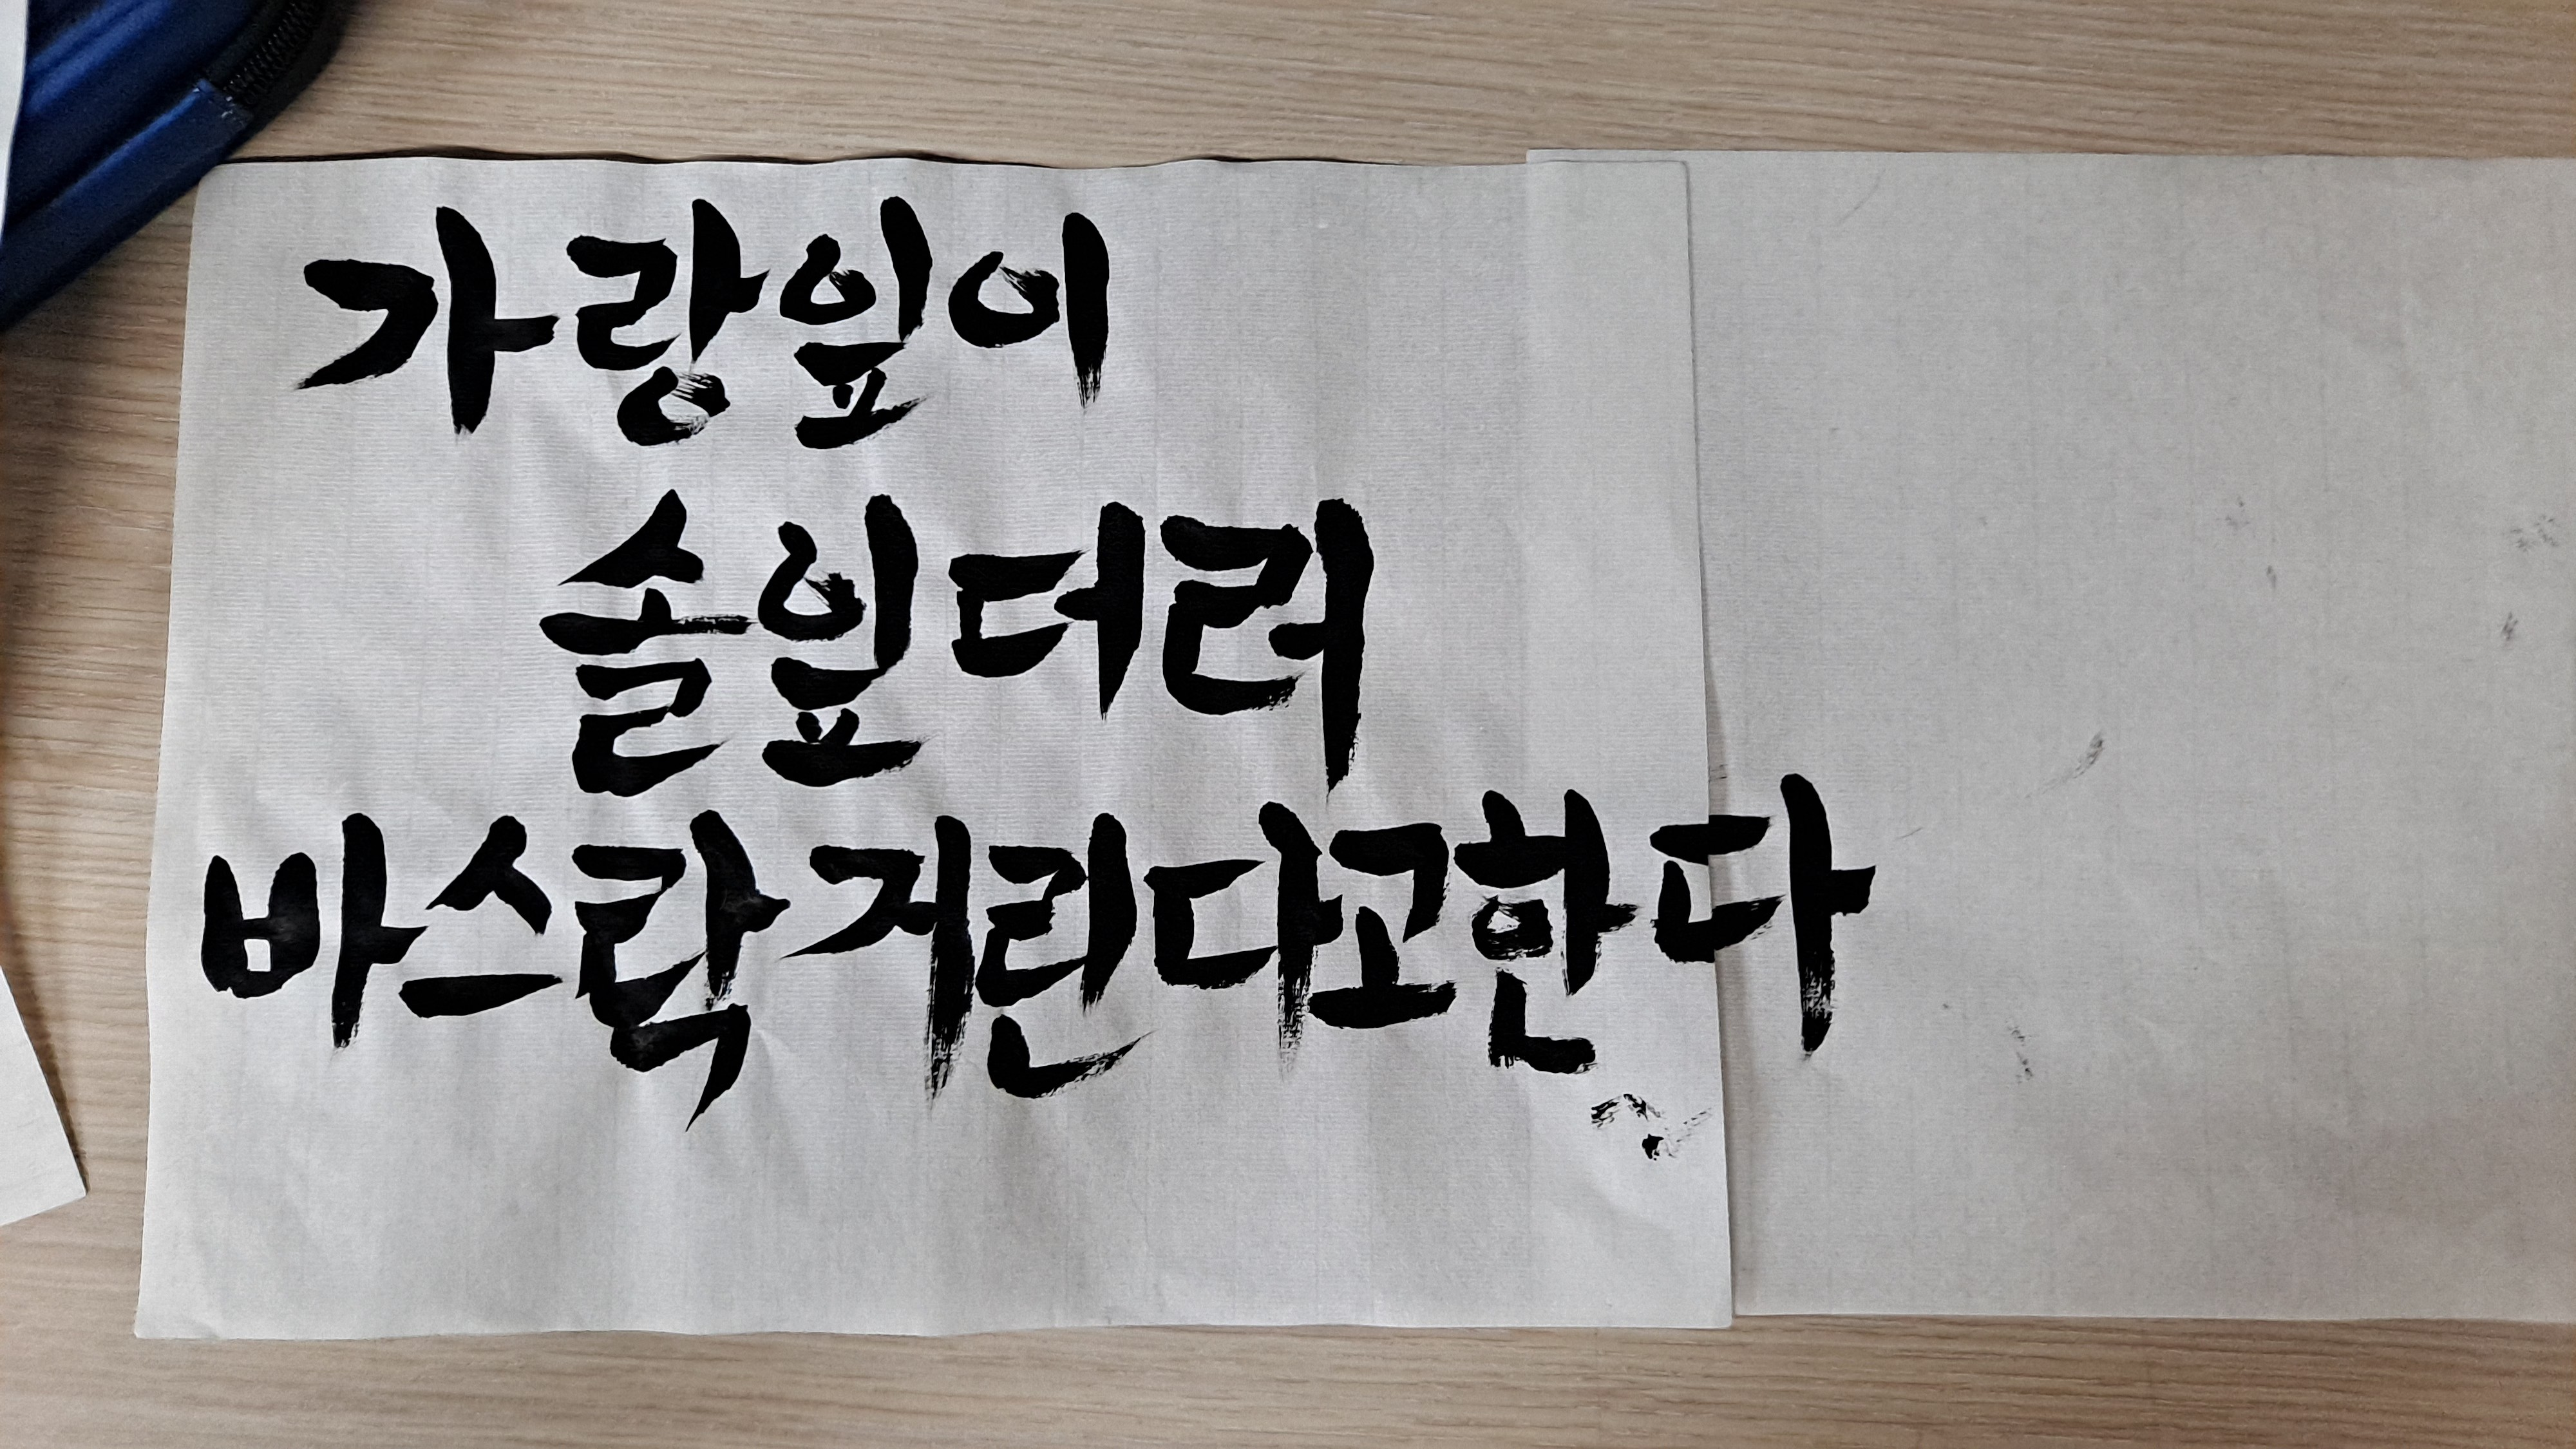 가랑잎이
솔잎더러
바스락거린다고한다